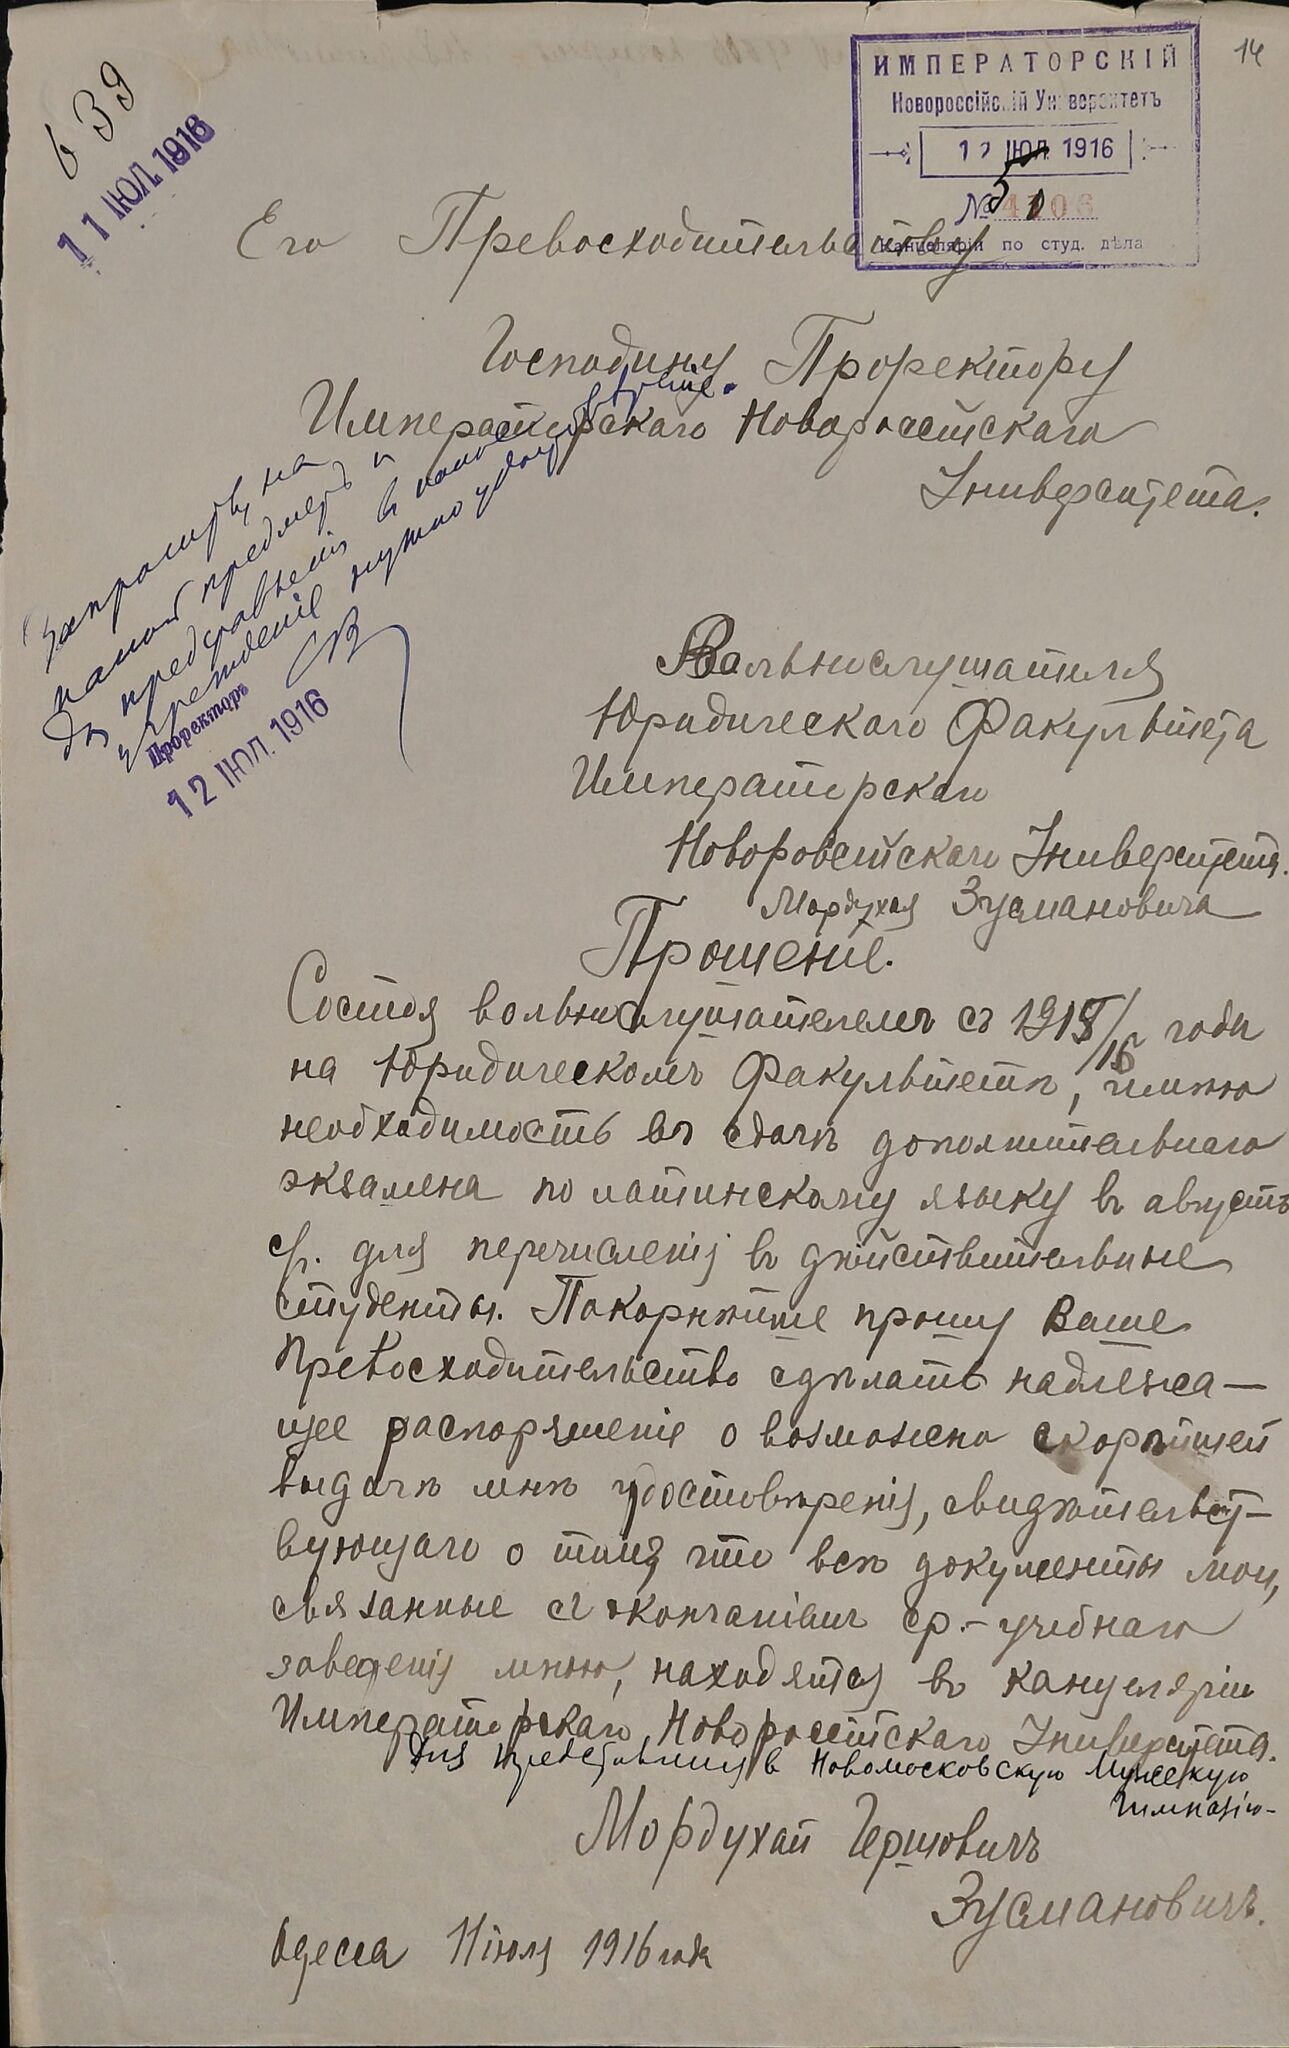 14
639
11 ІЮЛ. 1916
ИМПЕРАТОРСКІЙ
Новороссійскій Университетъ
12 ІЮЛ 1916
№ 4106
Канцелярія по студ. дѣла
Его Превосходительству
Господину Проректору
Императорскаго Новороссійскаго
Университета.
на
предметъ и
для представленія в
учрежденіе нужно удостовѣреніе.
Проректоръ
12 ІЮЛ. 1916
Вольнослушателя
Юридическаго Факультета
Императорскаго
Новороссійскаго Университета.
Мордухая Зусмановича
Прошеніе.
Состоя вольнослушателемъ съ 1915/16 года
на Юридическомъ Факультетѣ, имѣю
необходимость въ сдачѣ дополнительнаго
экзамена по латинскому языку въ августѣ
с/г. для перечисленія въ дѣйствительные
студенты. Покорнѣйше прошу Ваше
Превосходительство сдѣлать надлежа-
щее распоряженіе о возможно скорѣйшей
выдачѣ мнѣ удостовѣренія, свидѣтельст-
вующаго о томъ что всѣ документы мои,
связанные съ окончаніемъ ср.-учебнаго
заведенія мною, находятся въ канцеляріи
Императорскаго Новороссійскаго Университета.
для представленія в Новомосковскую Мужскую
Гимназію-
Мордухай Гершовичъ
Зусмановичъ.
Одесса 11 іюля 1916 года